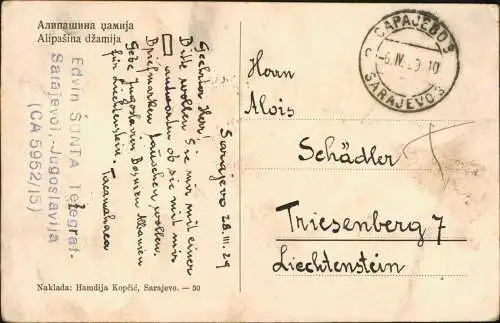 Алипашина џамија
Alipašina džamija
Edvin ŠUNTA Telegraf.
Sarajevo I.-Jugoslavija
(CA 5952/IS)
Sarajevo 28.III.29
Geehrter Herr!
Bitte wollen Sie mir mit einer
antworten ob sie mit mir
Briefmarken tauschen wollen.
Gebe Jugoslavien Bosnien Albanien
für Liechtenstein.
САРАЈЕВО 3
6.IV.
SARAJEVO 3
Herrn
Alois
Schädler
Triesenberg 7
Liechtenstein
Naklada: Hamdija Kopčić, Sarajevo. — 50